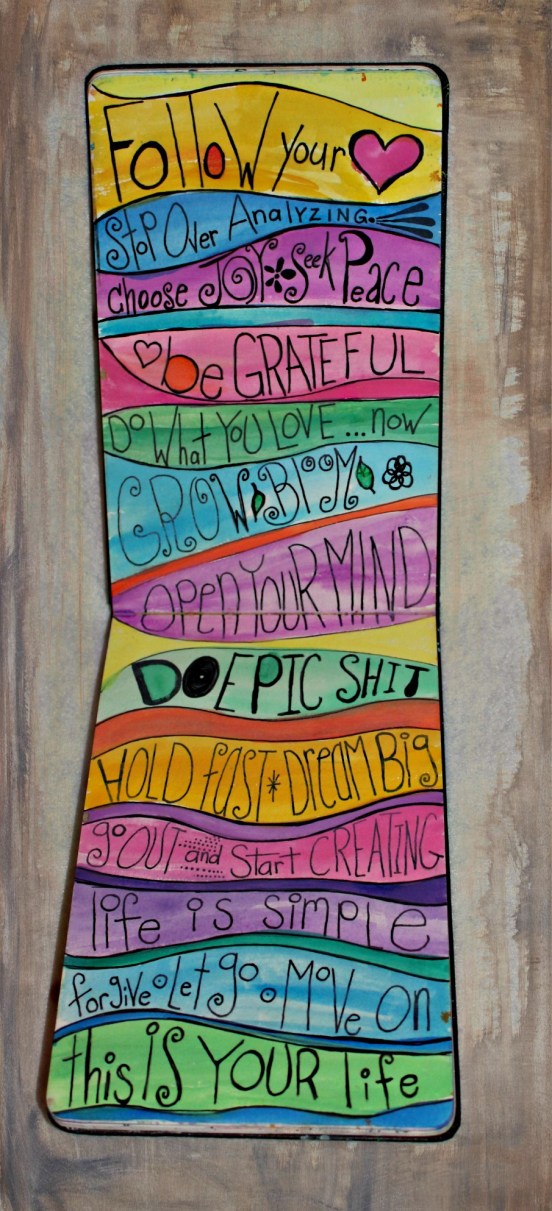 Follow your
Stop Over Analyzing
choose JOY Seek Peace
be GRATEFUL
Do What YOU LOVE ... now
GROW BlooM
OPEN YOUR MIND
DO EPIC SHIT
HOLD fAST * DreaM Big
go OUT and Start CREATING
life is simple
forgive Let go Move on
this IS YOUR life